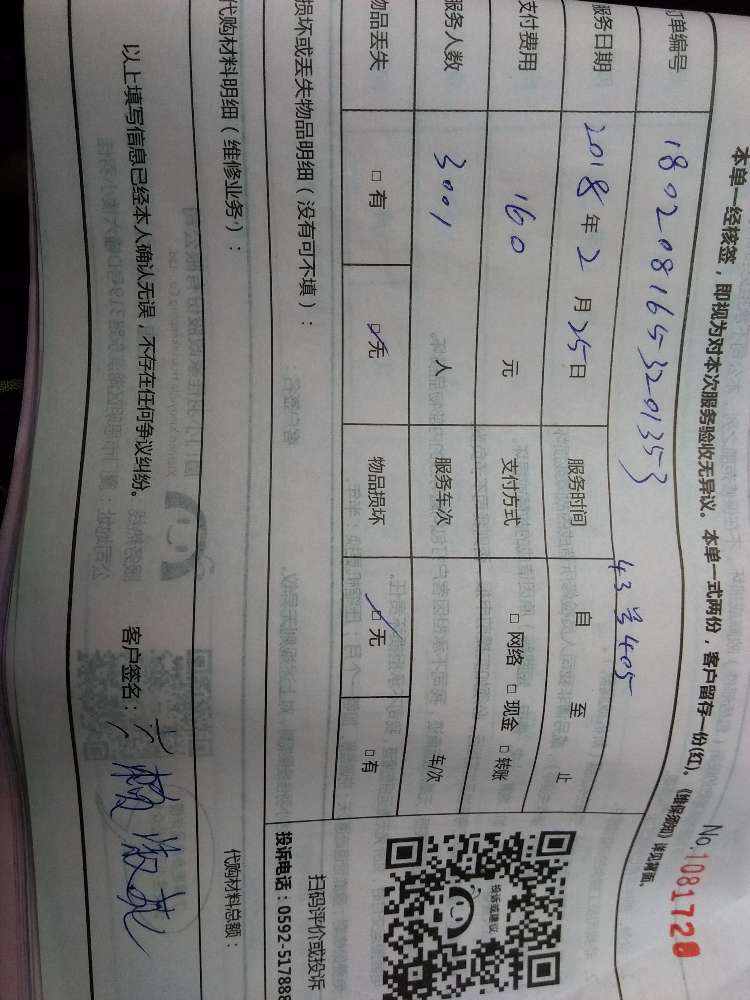 本单一经核签，即视为对本次服务验收无异议。本单一式两份，客户留存一份(红)。《维保须知》详见背面。
No.1081728
订单编号 1802081653201353 43号405
服务日期 2018年2月25日 服务时间 自 至 止
支付费用 160 元 支付方式 □网络 □现金 □转账
服务人数 3001 人 服务车次 车/次
物品丢失 □有 □无 物品损坏 □无 □有
损坏或丢失物品明细（没有可不填）：
代购材料明细（维修业务）：
代购材料总额：
投诉或建议
扫码评价或投诉
投诉电话：0592-517888
以上填写信息已经本人确认无误，不存在任何争议纠纷。 客户签名：